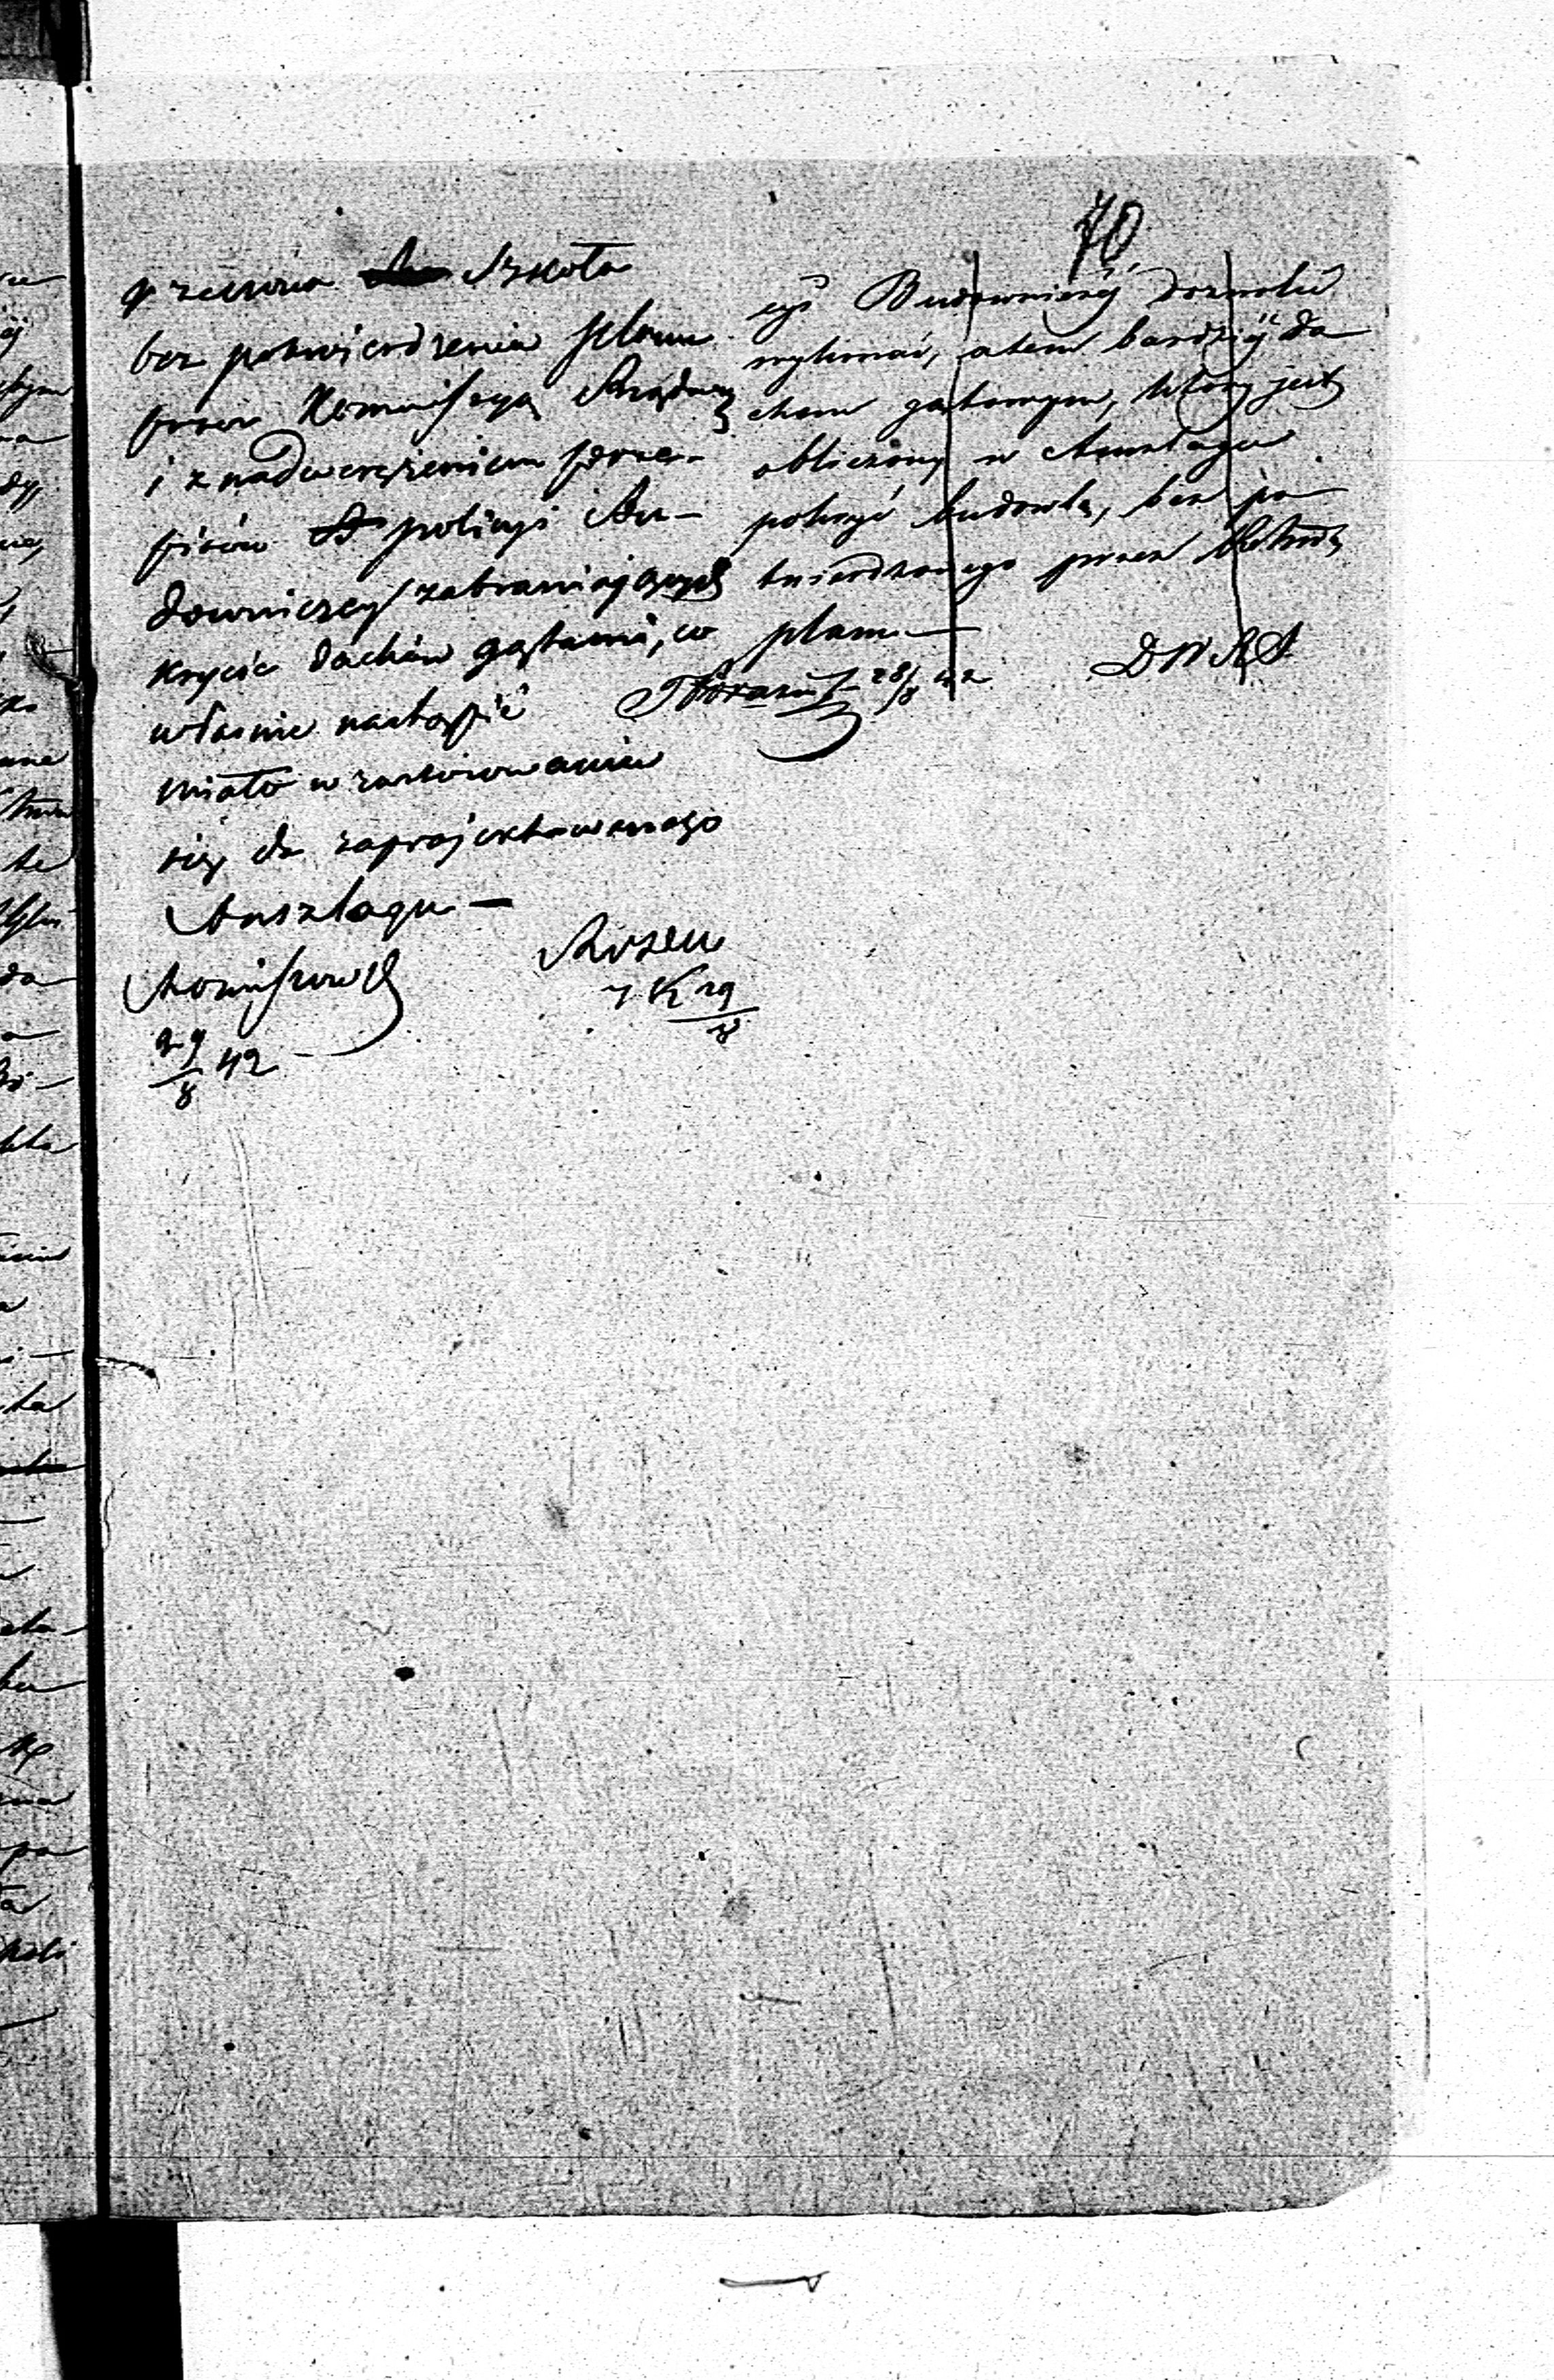 70
Szkoła
bez potwierdzenia planu
przez Kommissyą Rządową
i z nadwerężeniem prze-
pisów policyi Bu-
downiczey zabraniających
krycie dachów gątami, co
właśnie nastąpić
miało w zastosowaniu
się do zaprojektowanego
Anszlagu —
29/8 42
Rosen
29/8
cyi Budowniczéj dozwolić
atém bardziéj da
chem gątowym, który jest
obliczony w Anszlagu
pokryć budowlę, bez po
twierdzonego przez
planu —
28/8 42